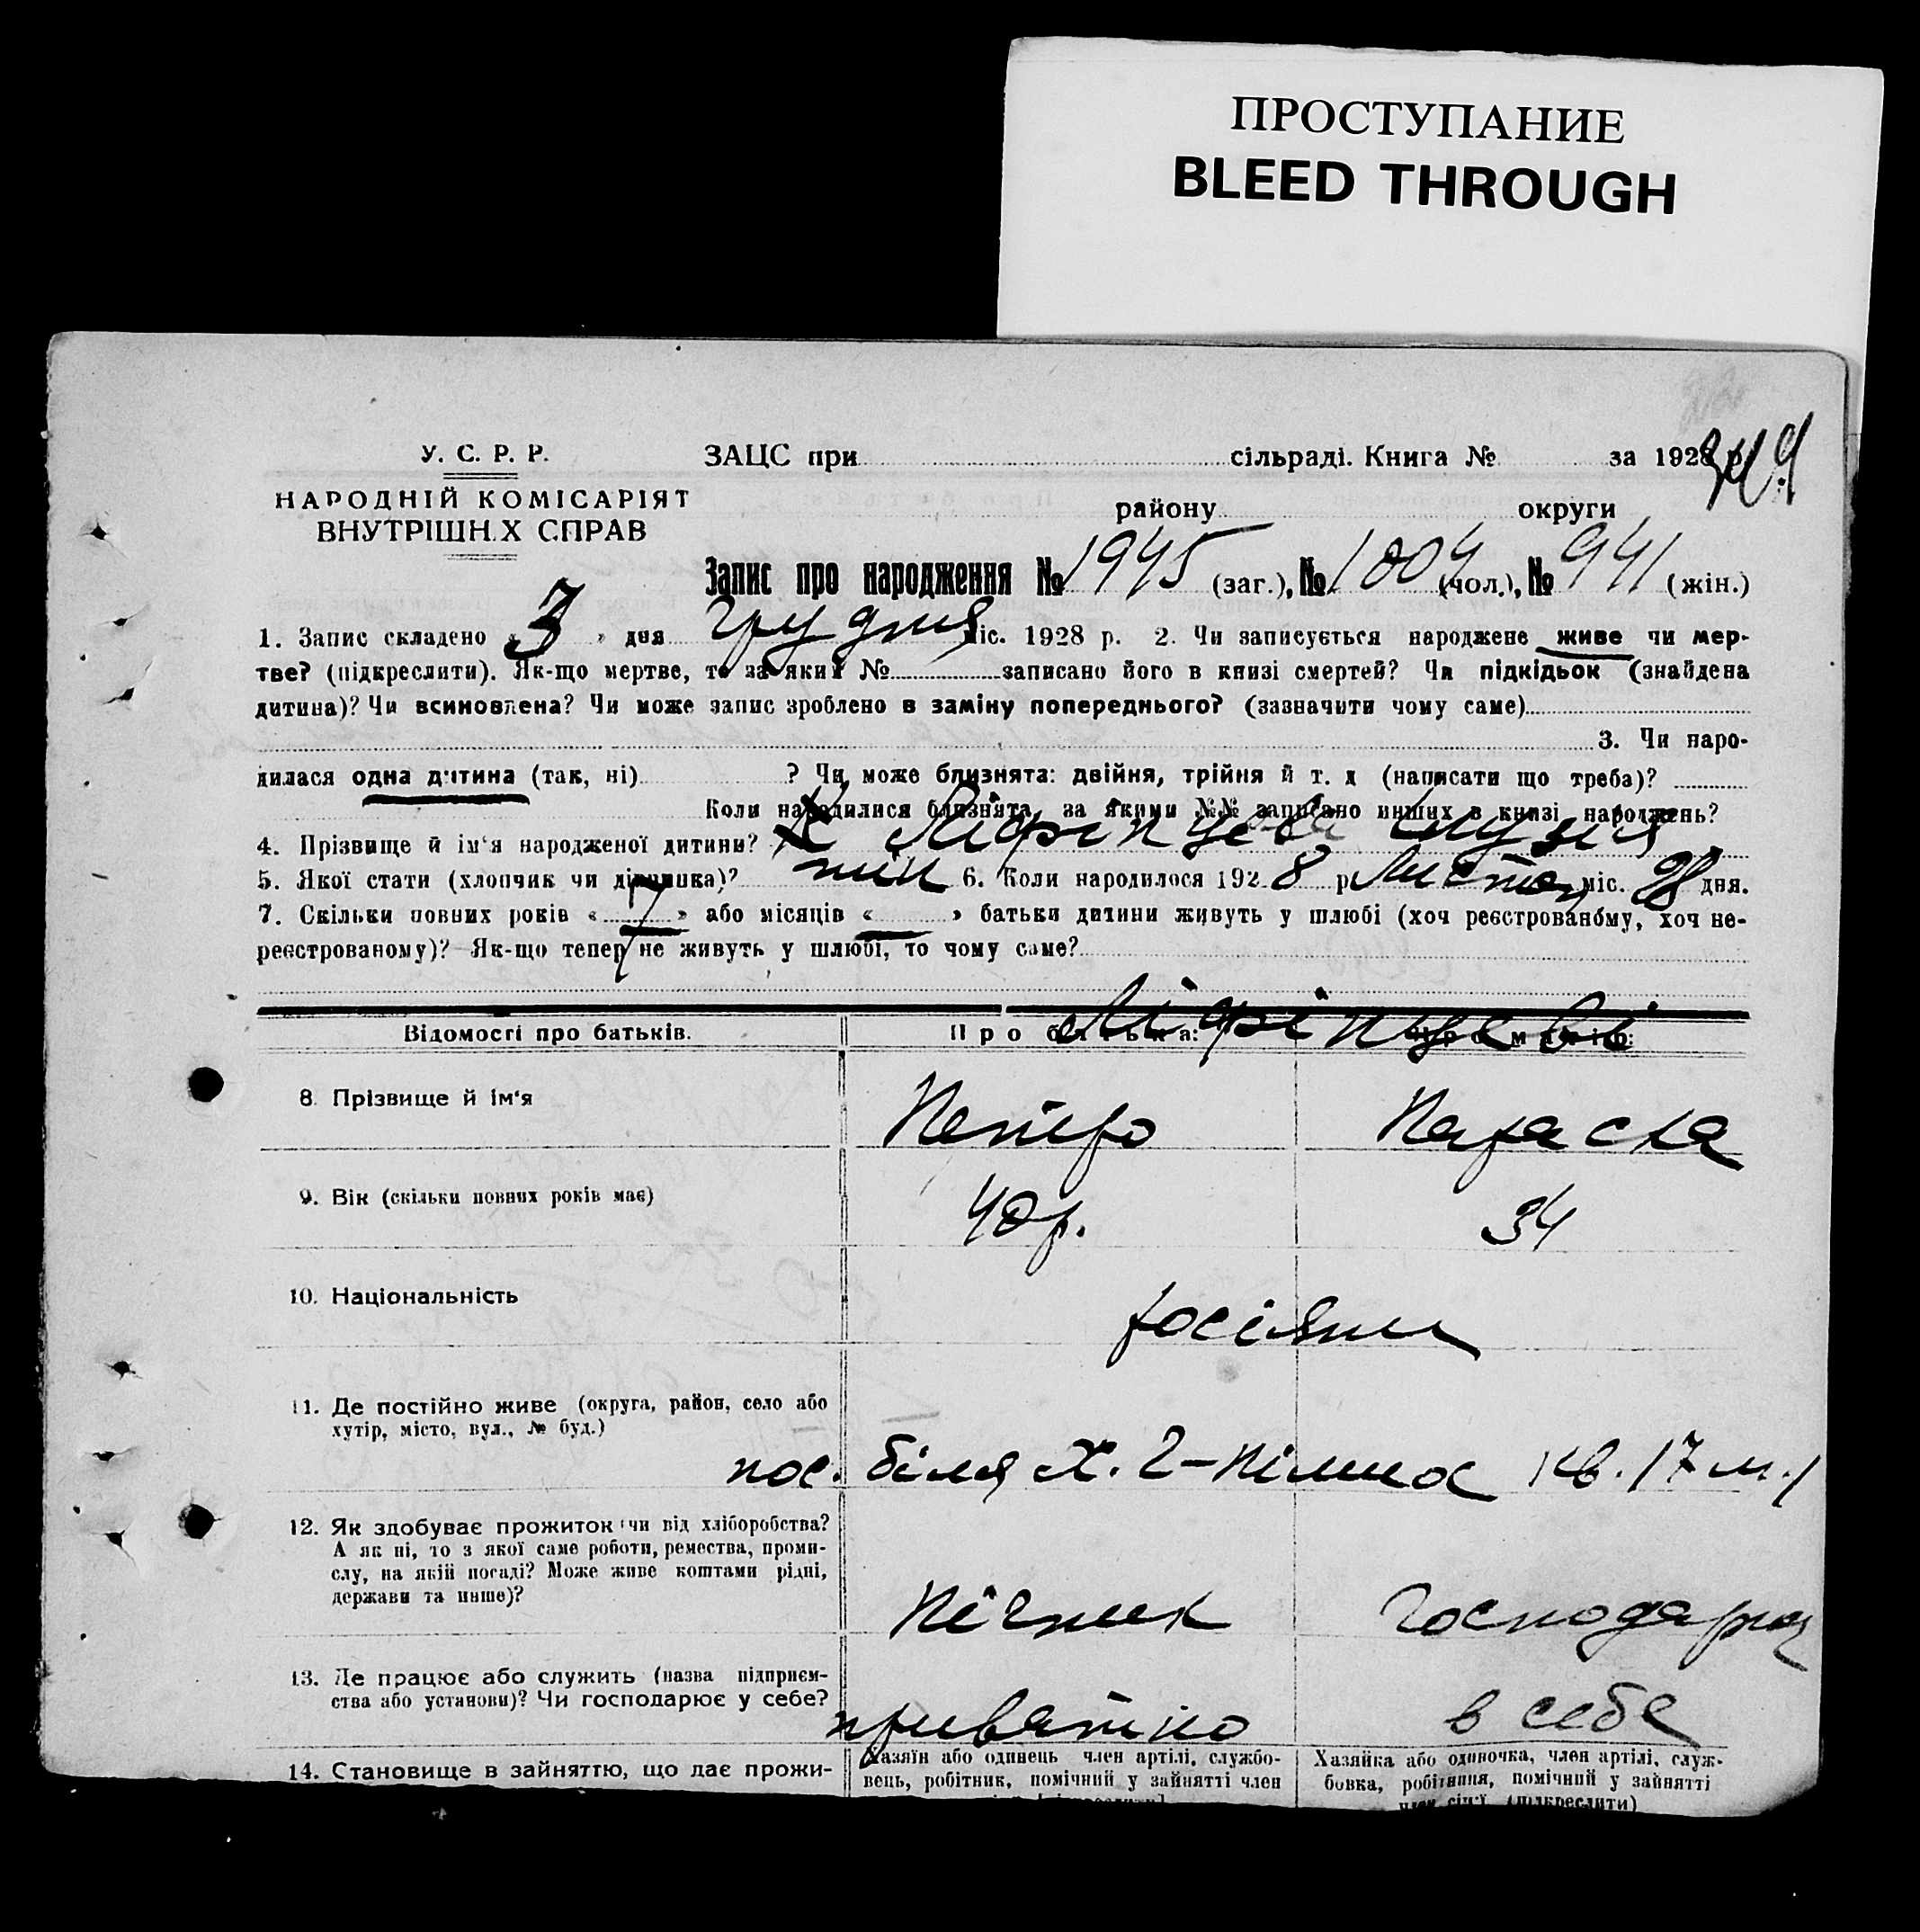 ПРОСТУПАНИЕ
BLEED THROUGH
У. С. Р. Р.
НАРОДНІЙ КОМІСАРІЯТ
ВНУТРІШН.Х СПРАВ
ЗАЦС при сільраді. Книга № за 1928 р.
району округи
Запис про народження № 1945 (заг.), № 1004 (чол.), № 941 (жін.)
1. Запис складено « 3 » дня грудня міс. 1928 р. 2. Чи записується народжене живе чи мер-
тве? (підкреслити). Як-що мертве, то за яким № записано його в книзі смертей? Чи підкідьок (знайдена
дитина)? Чи всиновлена? Чи може запис зроблено в заміну попереднього? (зазначити чому саме)
3. Чи наро-
дилася одна дитина (так, ні) ? Чи може близнята: двійня, трійня й т. д (написати що треба)?
Коли народилися близнята за якими №№ записано инших в книзі народжень?
4. Прізвище й ім'я народженої дитини?
5. Якої стати (хлопчик чи дівчинка)? 6. Коли народилося 192 8 р Листоп міс. 28 дня.
7. Скільки повних років « 7 » або місяців « » батьки дитини живуть у шлюбі (хоч реєстрованому, хоч не-
реєстрованому)? Як-що тепер не живуть у шлюбі, то чому саме?
Відомості про батьків. Про батька: Про матір:
8. Прізвище й ім'я Петро Параска
9. Вік (скільки повних років має) 40 р. 34
10. Національність росіяни
11. Де постійно живе (округа, район, село або
хутір, місто, вул., № буд.)
пос. біля Х. 2-
12. Як здобуває прожиток чи від хліборобства?
А як ні, то з якої саме роботи, ремества, проми-
слу, на якій посаді? Може живе коштами рідні,
держави та инше)?
Пічник Господарка
13. Де працює або служить (назва підприєм-
ства або установи)? Чи господарює у себе?
приватно в себе
14. Становище в зайняттю, що дає прожи-
Хазяїн або одинець член артілі, службо-
вець, робітник, помічний у зайнятті член
Хазяйка або одиночка, член артілі, служ-
бовка, робітниця, помічний у зайнятті
член сім'ї (підкреслити)